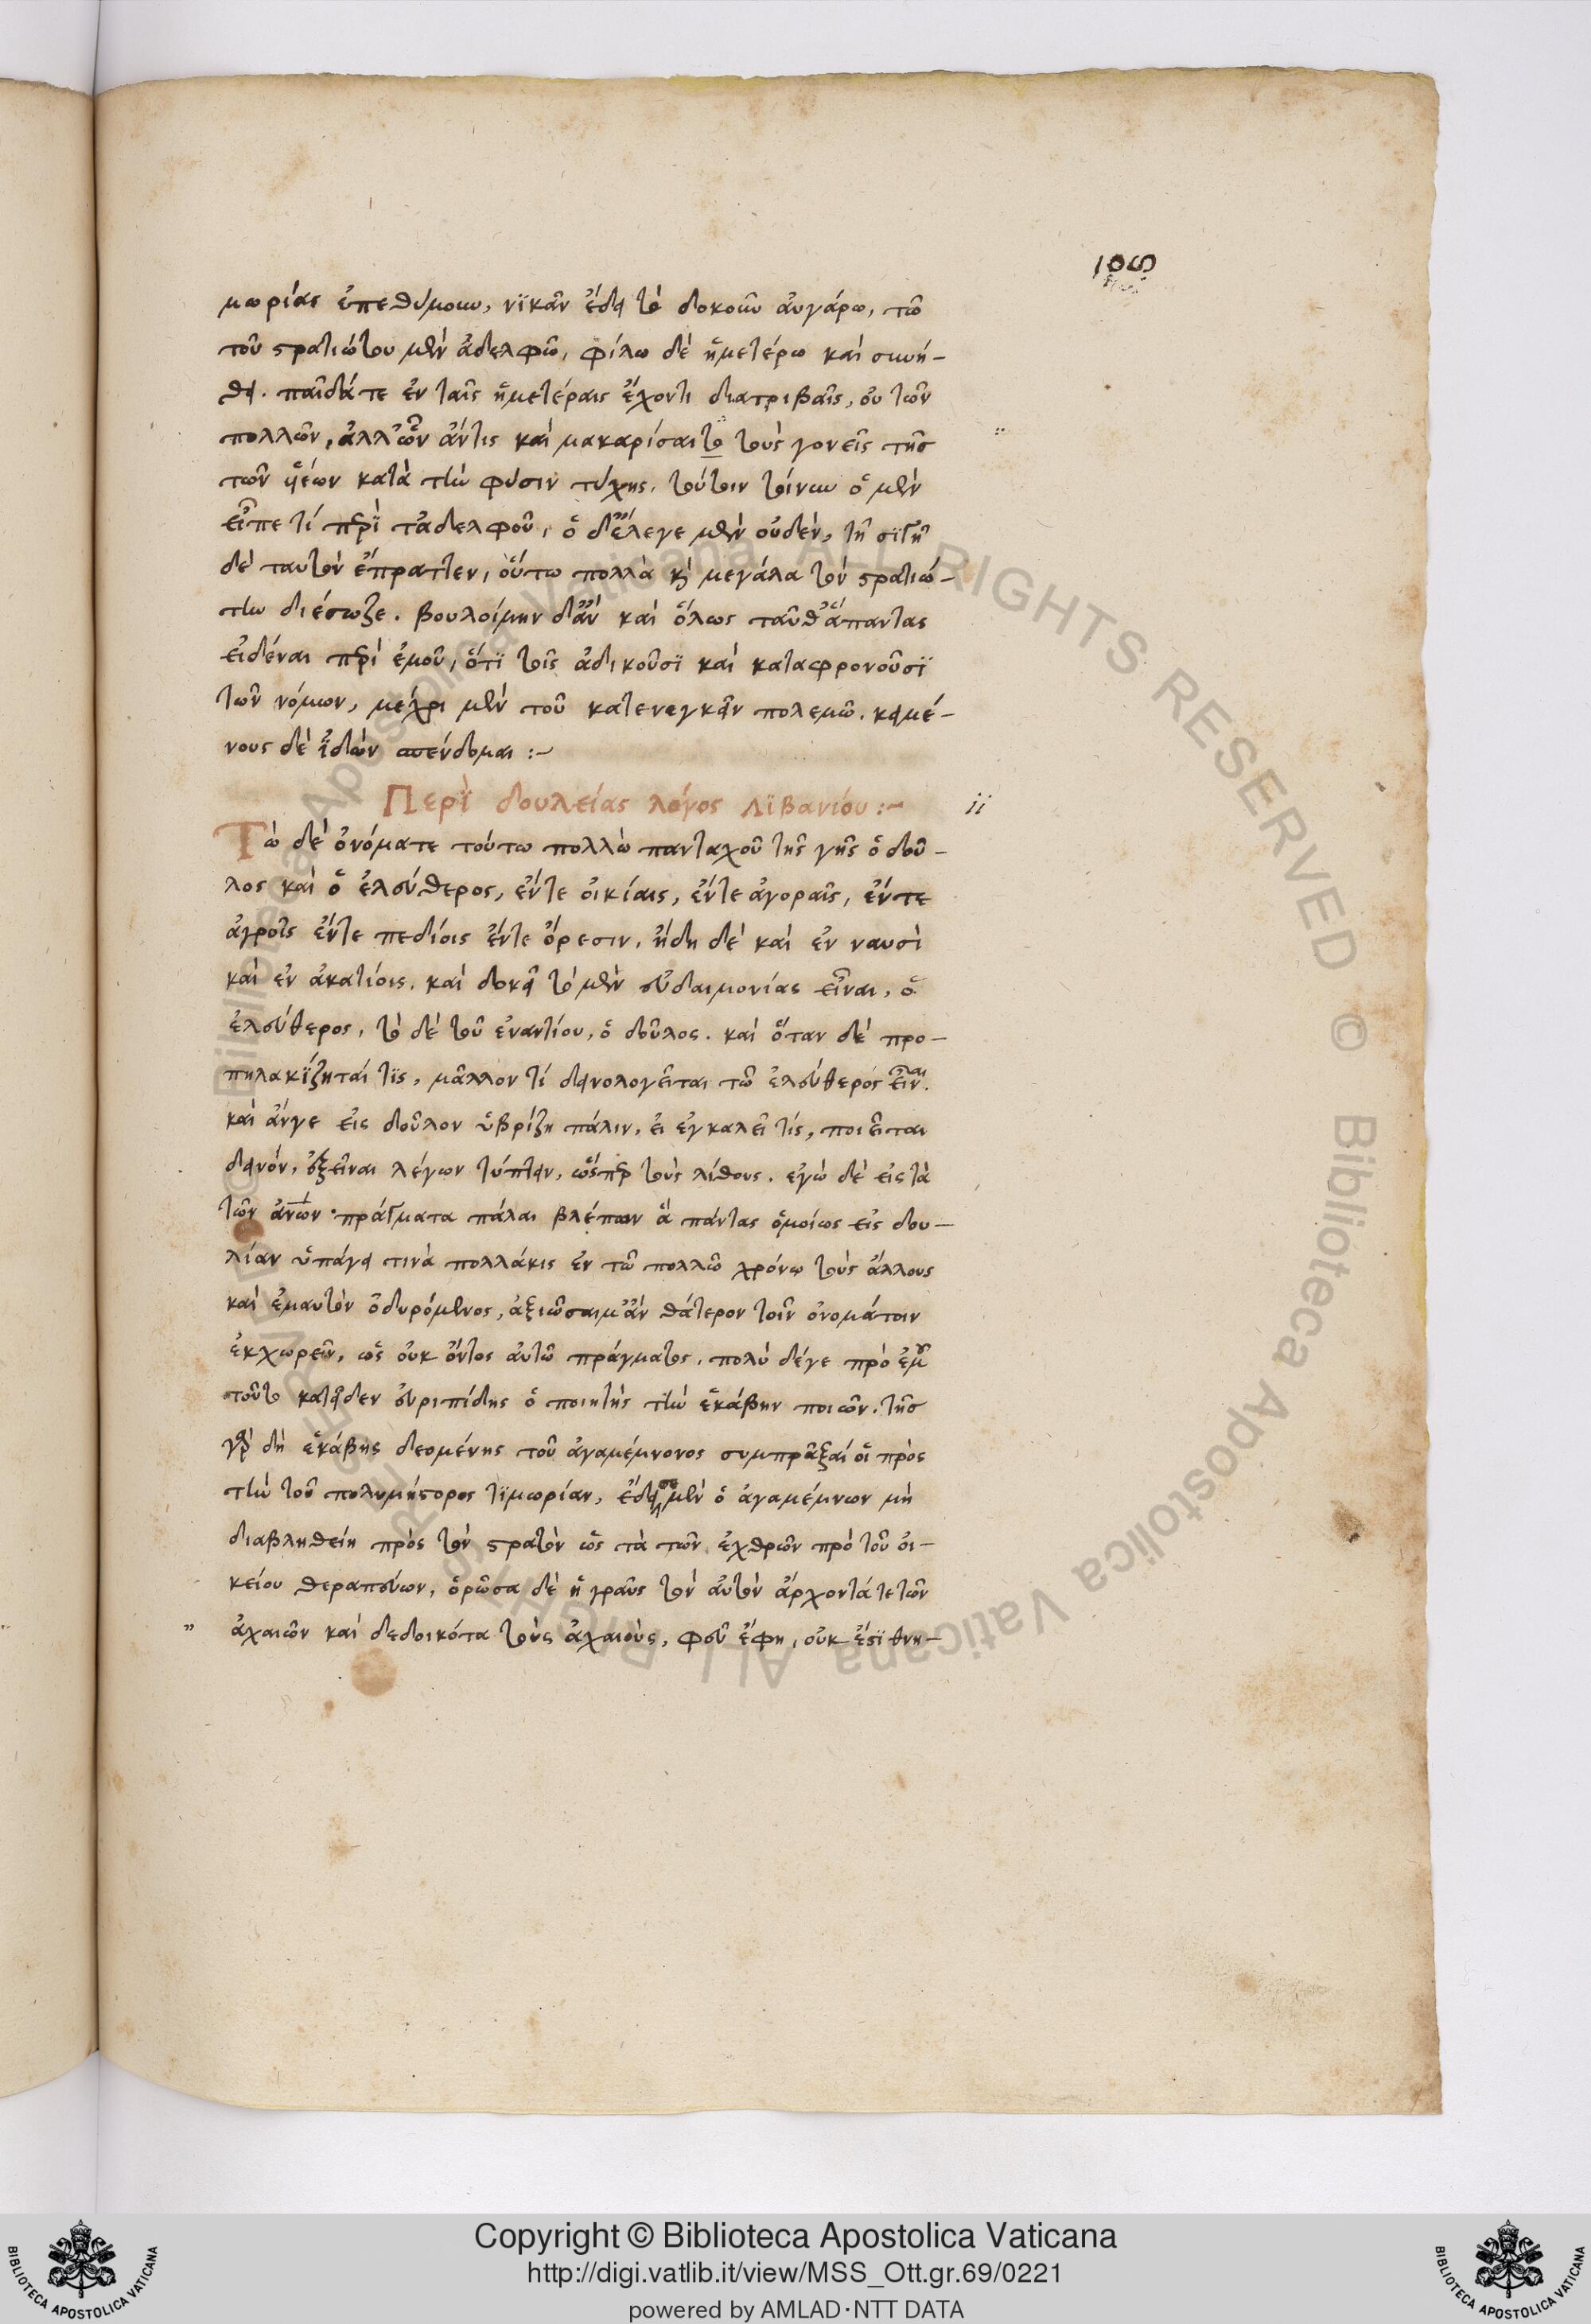 105
μωρίας ἐπεθύμουν, νϊκᾶν ἔδει τὸ δοκοῦν ἀυγάρω, τῶ
τοῦ στρατιώτου μὲν ἀδελφῶ, φίλω δὲ ἡμετέρω καὶ συνή-
θει. παῖδάτε ἐν ταῖς ἡμετέραις ἔχοντι διατριβαῖς, οὐ τῶν
πολλῶν, ἀλλ'ὧν ἄντις καὶ μακαρίσαιτο τοὺς γονεῖς τῆσ
τῶν υἱέων κατὰ τὴν φύσιν τύχης. τούτοιν τοίνυν ὁ μὲν
εἶπε τί περὶ τἀδελφοῦ, ὁ δ'ἔλεγε μὲν οὐδέν, τῆ σϊγῆ
δὲ ταυτὸν ἔπραττεν, οὕτω πολλὰ κὶ μεγάλα τὸν στρατιώ-
την διέσωζε. βουλοίμην δ'ἂν καὶ ὅλως ταῦθ'ἅπαντας
εἰδέναι περὶ ἐμοῦ, ὅτϊ τοῖς ἀδικοῦσϊ καὶ καταφρονοῦσϊ
τῶν νόμων, μέχρι μὲν τοῦ κατενεγκεῖν πολεμῶ. κειμέ-
νους δὲ ἰδὼν σπένδομαι :~
Περὶ δουλείας λόγος Λϊβανίου :~ ιι
Τὼ δὲ ὀνόματε τούτω πολλὼ πανταχοῦ τῆς γῆς ὁ δοῦ-
λος καὶ ὁ ἐλεύθερος, ἔντε οἰκίαις, ἔντε ἀγοραῖς, ἔντε
ἀγροῖς ἔντε πεδίοις ἔντε ὄρεσιν. ἤδη δὲ καὶ ἐν ναυσὶ
καὶ ἐν ἀκατίοις. καὶ δοκεῖ τὸ μὲν εὐδαιμονίας εἶναι, ὁ
ἐλεύθερος, τὸ δὲ τοῦ ἐναντίου, ὁ δοῦλος. καὶ ὅταν δὲ προ-
πηλακϊζηταί τϊς, μᾶλλον τί δεινολογεῖται τῶ ἐλεύθερός εἶναι.
καὶ ἄνγε εἰς δοῦλον ὑβρίζη πάλιν, εἰ ἐγκαλεῖ τίς, ποιεῖται
δεινόν, ἐξεῖναι λέγων τύπτειν, ὥσπερ τοὺς λίθους. ἐγὼ δὲ εἰς τὰ
τῶν ἀνων πράγματα πάλαι βλέπων ἃ πάντας ὁμοίως εἰς δου-
λίαν ὑπάγει τινὰ πολλάκις ἐν τῶ πολλῶ χρόνω τοὺς ἄλλους
καὶ ἐμαυτὸν ὀδυρόμενος, ἀξιῶσαιμ'ἂν θάτερον τοῖν ὀνομάτοιν
ἐκχωρεῖν, ὡς οὐκ ὄντος αὐτῶ πράγματος. πολὺ δέγε πρὸ ἐμοῦ
τοῦτο κατεῖδεν εὐριπίδης ὁ ποιητὴς τὴν ἑκάβην ποιῶν. τῆσ
γὰρ δὴ ἑκάβης δεομένης τοῦ ἀγαμέμνονος συμπρᾶξαί οἱ πρὸς
τὴν τοῦ πολυμήστορος τϊμωρίαν, ἔδεισε μὲν ὁ ἀγαμέμνων μὴ
διαβληθείη πρὸς τὸν στρατὸν ὡς τὰ τῶν ἐχθρῶν πρὸ τοῦ οἰ-
κείου θεραπεύων, ὁρῶσα δὲ ἡ γραῦς τὸν αὐτὸν ἄρχοντά τε τῶν
ἀχαιῶν καὶ δεδοικότα τοὺς ἀχαιούς, φεῦ ἔφη, οὐκ ἔστϊ θνη-
Copyright © Biblioteca Apostolica Vaticana
http://digi.vatlib.it/view/MSS_Ott.gr.69/0221
powered by AMLAD·NTT DATA